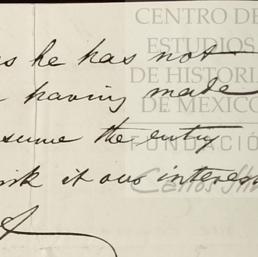 CENTRO DE
ESTUDIOS
DE HISTORIA
DE MEXICO
FUNDACIÓN
Carlos Slim
as he has not
having made
the entry
it our interest